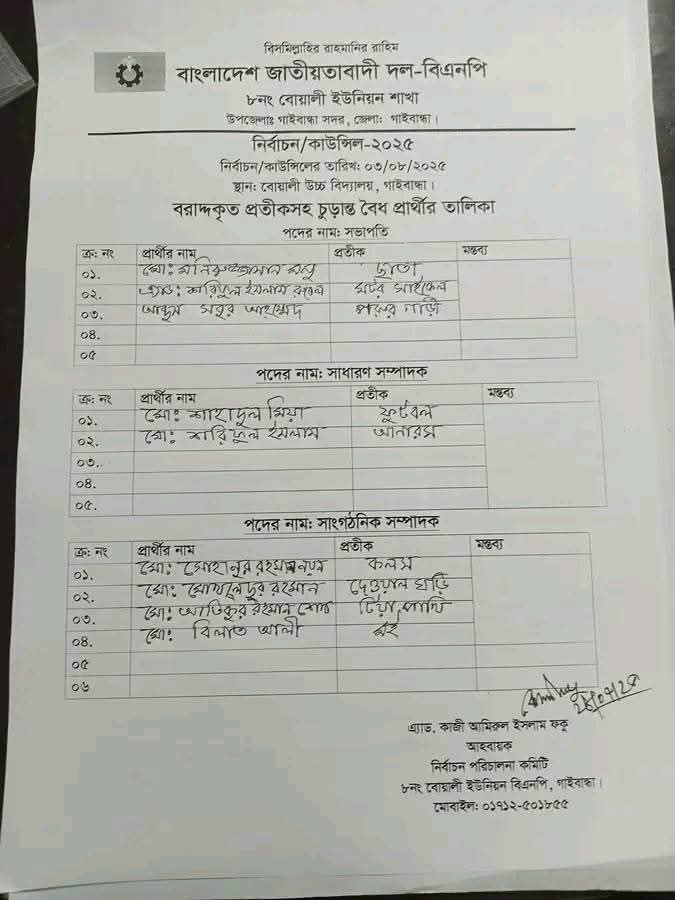 বিসমিল্লাহির রাহমানির রাহিম
বাংলাদেশ জাতীয়তাবাদী দল-বিএনপি
৮নং বোয়ালী ইউনিয়ন শাখা
উপজেলাঃ গাইবান্ধা সদর, জেলা: গাইবান্ধা।
নির্বাচন/কাউন্সিল-২০২৫
নির্বাচন/কাউন্সিলের তারিখ: ০৩/০৮/২০২৫
স্থান: বোয়ালী উচ্চ বিদ্যালয়, গাইবান্ধা।
বরাদ্দকৃত প্রতীকসহ চুড়ান্ত বৈধ প্রার্থীর তালিকা
পদের নাম: সভাপতি
ক্র: নং প্রার্থীর নাম প্রতীক মন্তব্য
০১. মো: মনিরুজ্জামান ছাতা
০২. এ্যাড: শরিফুল ইসলাম রুবেল মটর সাইকেল
০৩. আব্দুস সবুর আহম্মেদ গরুর গাড়ী
০৪.
০৫
পদের নাম: সাধারণ সম্পাদক
ক্র: নং প্রার্থীর নাম প্রতীক মন্তব্য
০১. মো: শাহাদুল মিয়া ফুটবল
০২. মো: শরিফুল ইসলাম আনারস
০৩.
০৪.
০৫.
পদের নাম: সাংগঠনিক সম্পাদক
ক্র: নং প্রার্থীর নাম প্রতীক মন্তব্য
০১. মো: কলস
০২. মো: রহমান দেওয়াল ঘড়ি
০৩. মো: আতিকুর রহমান টিয়া পাখি
০৪. মো: আলী বই
০৫
০৬
এ্যাড. কাজী আমিরুল ইসলাম ফকু
আহবায়ক
নির্বাচন পরিচালনা কমিটি
৮নং বোয়ালী ইউনিয়ন বিএনপি, গাইবান্ধা।
মোবাইল: ০১৭১২-৫০১৮৫৫